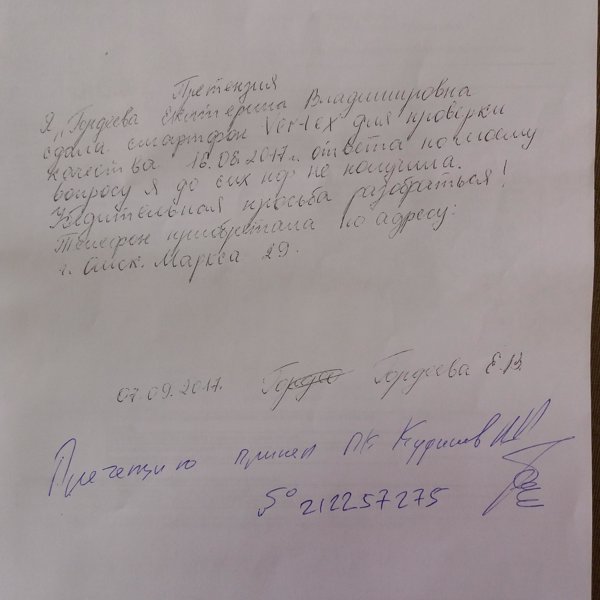 Претензия
Я, Гордеева Екатерина Владимировна
сдала смартфон Vertex для проверки
качества 16.08.2017г. ответа по моему
вопросу я до сих пор не получила.
Убедительная просьба разобраться!
Телефон приобретала по адресу:
г. Омск. Маркса 29.
07.09.2017. Гордеева Е.В.
Претензию принял ПК
212257275